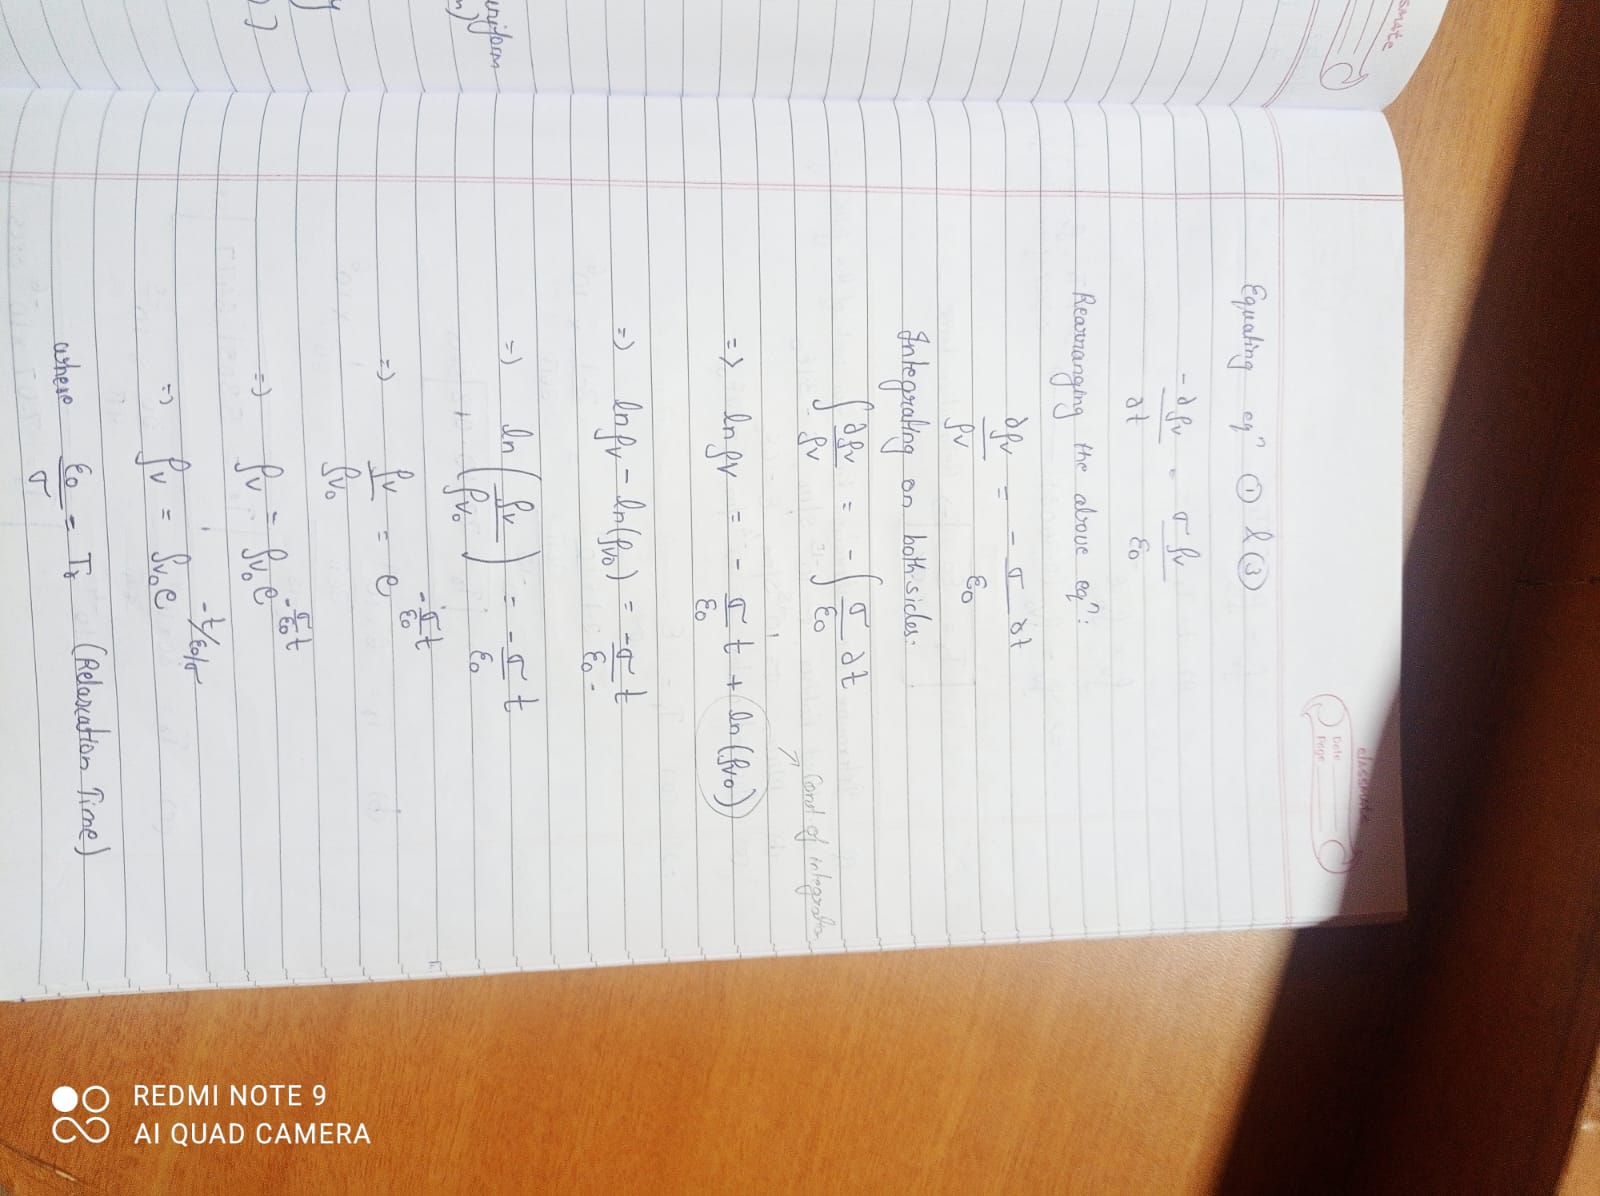 classmate
Date
Page
Equating eqⁿ ① & ③
-∂ρv/∂t = σρv/ε0
Rearranging the above eqⁿ:
∂ρv/ρv = - σ/ε0 ∂t
Integrating on both sides:
∫ ∂ρv/ρv = - ∫ σ/ε0 ∂t
const of integration
=> ln ρv = - σ/ε0 t + ln(ρv0)
=> ln ρv - ln(ρv0) = -σ/ε0 t
=> ln (ρv/ρv0) = -σ/ε0 t
=> ρv/ρv0 = e^(-σ/ε0 t)
=> ρv = ρv0 e^(-σ/ε0 t)
=> ρv = ρv0 e^(-t/ε0/σ)
where ε0/σ = Tr (Relaxation Time)
uniform
REDMI NOTE 9
AI QUAD CAMERA